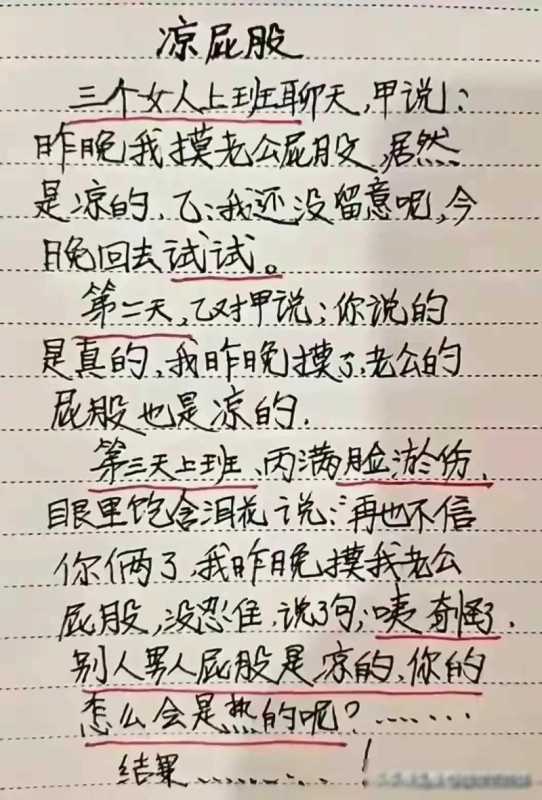 凉屁股
三个女人上班聊天,甲说:
昨晚我摸老公屁股,居然
是凉的、乙:我还没留意呢,今
晚回去试试。
第二天,乙对甲说:你说的
是真的,我昨晚摸了老公的
屁股也是凉的.
第三天上班、丙满脸淤伤.
眼里饱含泪花说:再也不信
你俩了,我昨晚摸我老公
屁股,没忍住,说了句;咦奇怪了.
别人男人屁股是凉的、你的
怎么会是热的呢?……
结果………!